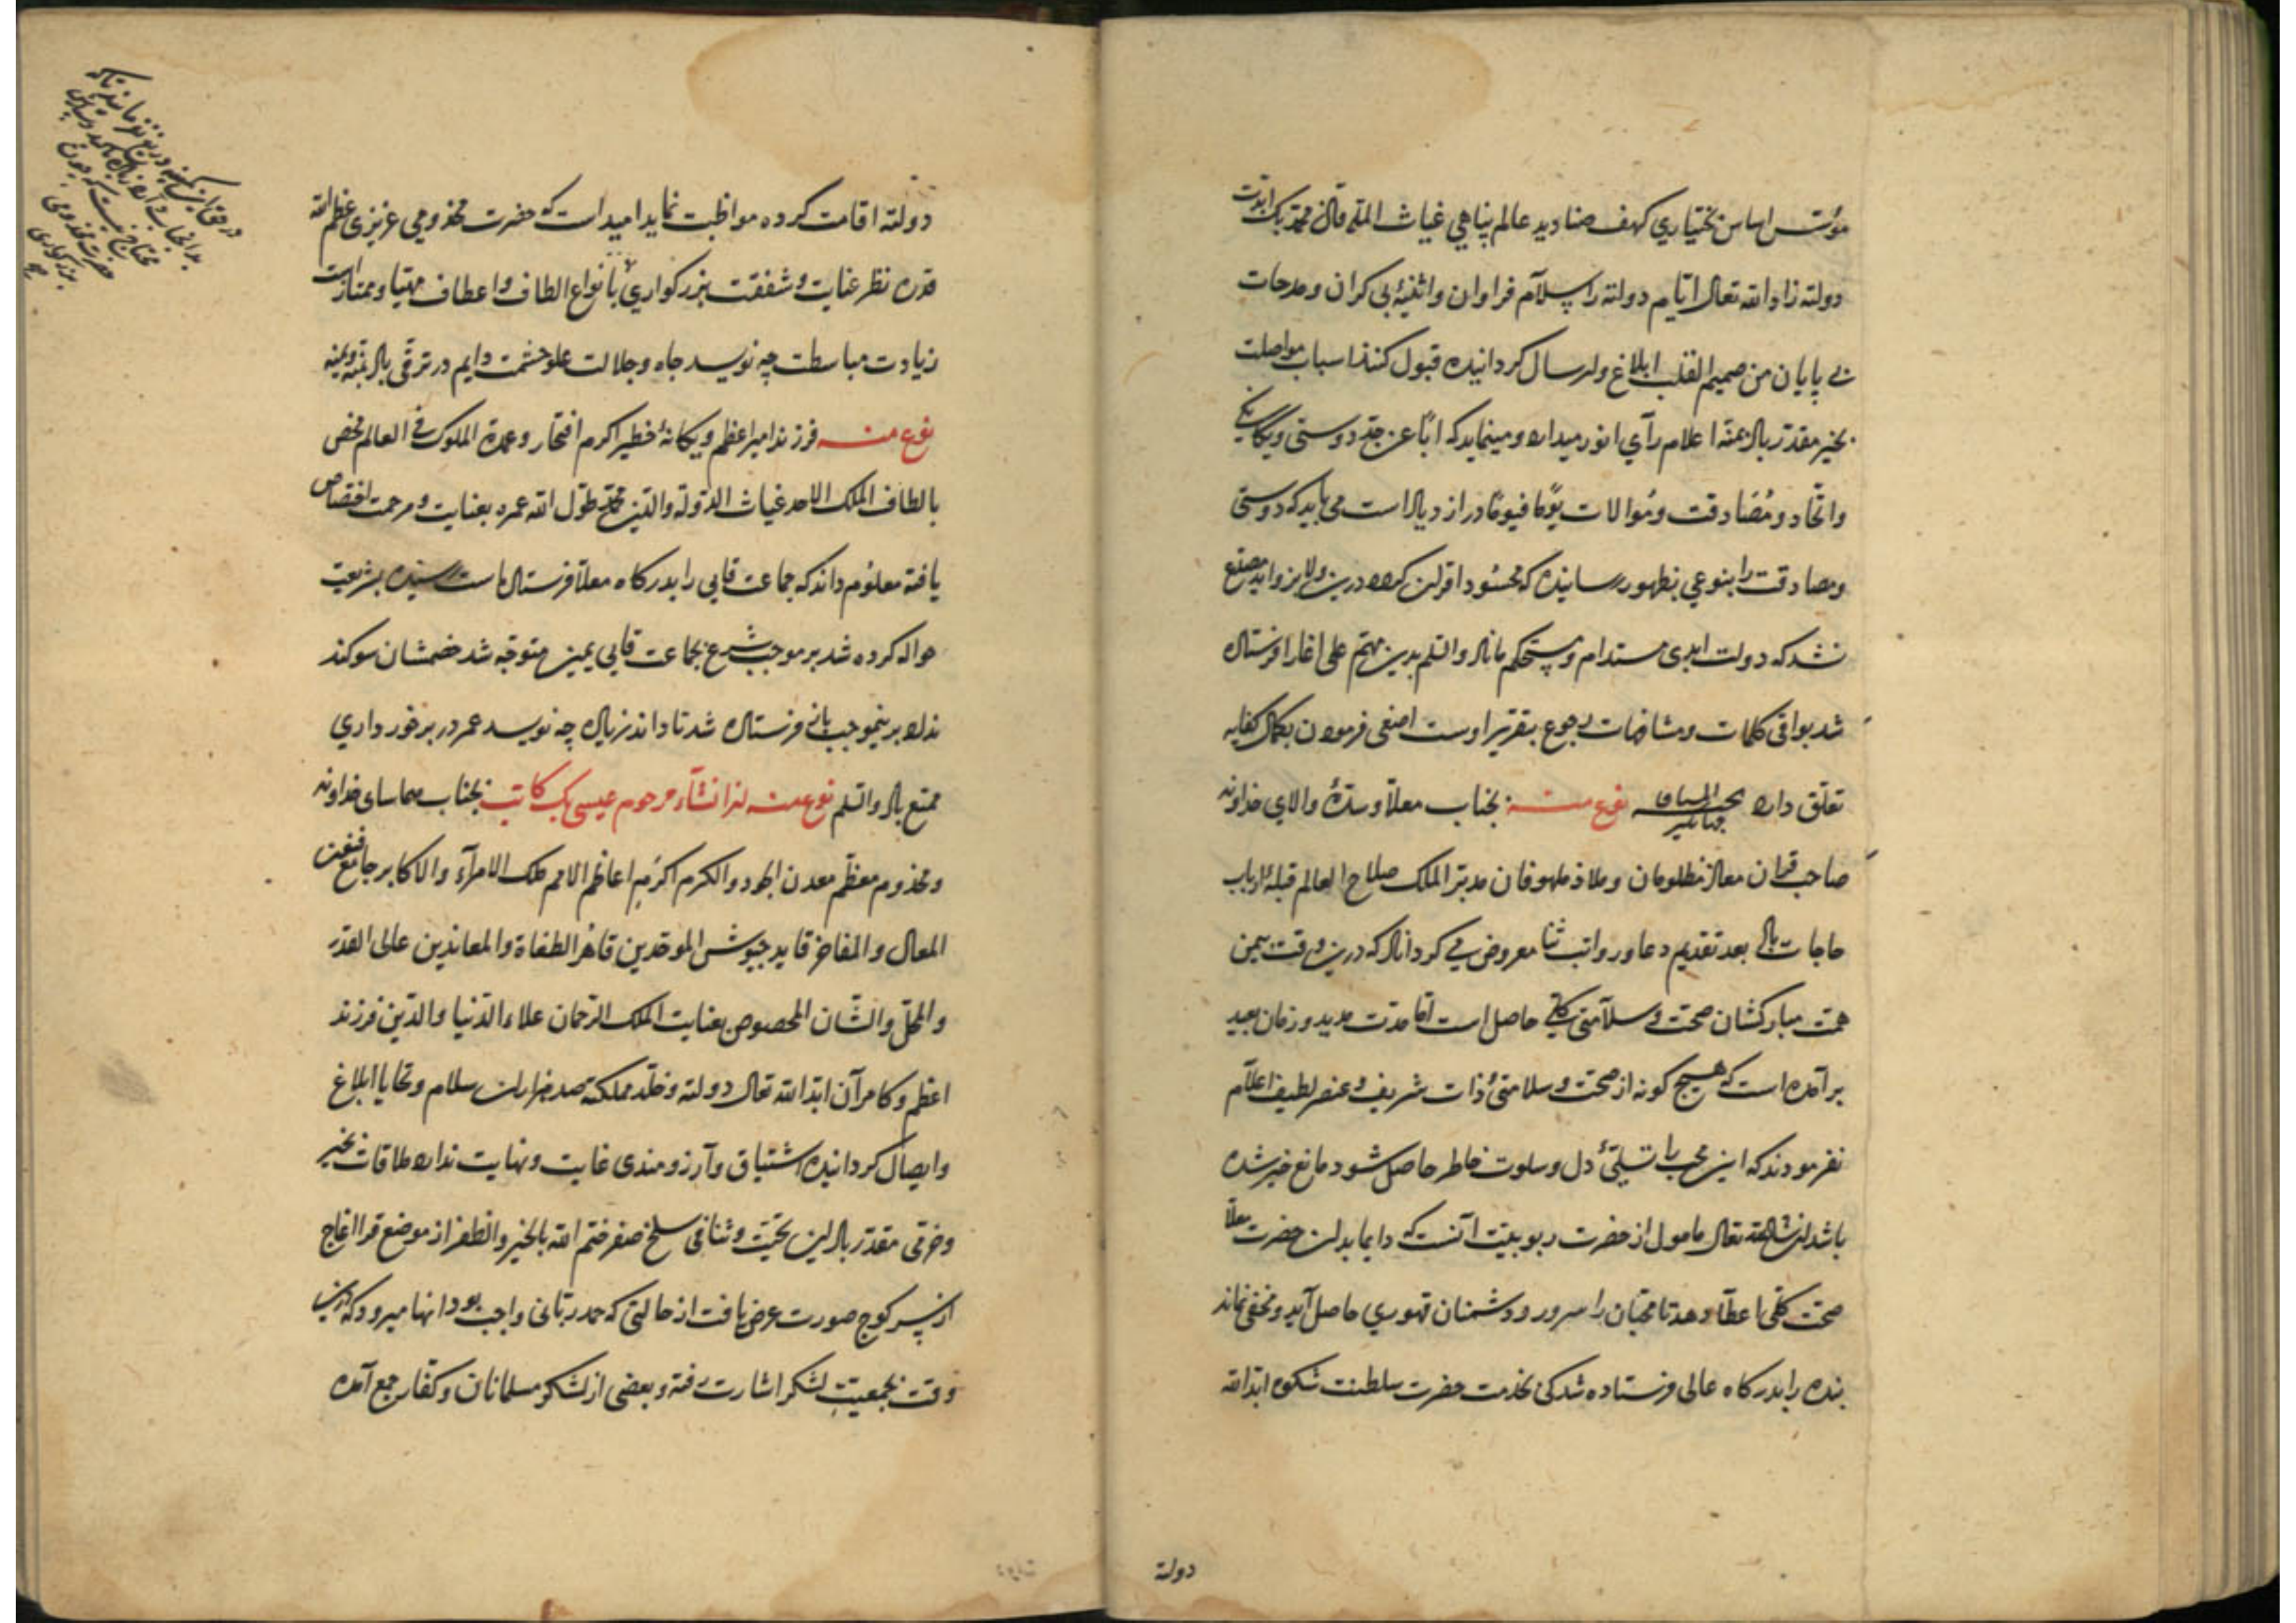 مؤسس اساس بختیاري کهف صنادید عالم پناهي غیاث المله قاآنی محمد بک ابدت
دولته زاد الله تعالی ایام دولته را سلام فراوان و اثنیهٔ بی کران و مدحات
بی پایان من صمیم القلب ابلاغ و ارسال کردانیده قبول کنند اسباب مواصلت
بخیر مقدر باد بمنه اعلام رأي انور میدارد و مینماید که اباً عن جد دوستی و یکانکی
و اتحاد و مُصَادقت و مُوالات یومًا فیومًا در ازدیاد است می باید که دوستی
و مصادقت را بنوعي بظهور رسانیده که محسُود اقران کردد درین ولا
شد که دولت ابدی مستدام و مستحکم ماناد والسلم بدین مهم علی اغا را فرستاده
شد بواقی کلمات و مشافهات رجوع بتقریر اوست اصغی فرمودن بکمال کفایه
تعلق دارد نوع منه بجناب معلا و سدهٔ والاي خداوند
صاحب قران معاذ مظلومان و ملاذ ملهوفان مدبر الملک صلاح العالم قبلهٔ ارباب
حاجات باد بعد تقدیم دعا و رواتب ثنا معروض می کرداناد که درین وقت بیمن
همت مبارکشان صحت و سلامتی کلی حاصل است اما مدت مدید و زمان بعید
بر آمده است که هیچ کونه از صحت و سلامتیٔ ذات شریف و عنصر لطیف اعلام
نفرمودند که این محب را تسلیٔ دل و سلوت خاطر حاصل شود مانع خیر شده
باشد ان شاء الله تعالی مامول از حضرت ربوبیت آنست که دایما بدان حضرت معلا
صحت کلی با عطا دهد تا محبان را سرور و دشمنان قهوري حاصل آید و مخفی نماند
بنده را بدرکاه عالی فرستاده شد کی بخدمت حضرت سلطنت شکوه ابد الله
دولته
دولته اقامت کرده مواظبت نماید امید است که حضرت مخدومي عزیزي عظم الله
قدره نظر عنایت و شفقت بزرکواري بانواع الطاف و اعطاف مهیا و ممتاز است
زیادت مباسطت چه نویسد جاه و جلالت علو حشمت دایم در ترقی باد بمنه و یمنه
نوع منه فرزند امیر اعظم و یکانهٔ خطیر اکرم افتخار و عمدة الملوک فی العالم مخص
بالطاف الملک الاحد غیاث الدوله والدین محمد طول الله عمره بعنایت و مرحمت اختصاص
یافته معلوم داند که جماعت قابي را بدرکاه معلا فرستاده است رسیده بشریعت
حواله کرده شد بر موجب شرع بجماعت قابي یمین متوجه شد خصمشان سوکند
نداد برینموجب بانی فرستاده شد تا داند زیاده چه نویسد عمر در برخورداري
ممتع باد والسلم نوع منه از انشاء مرحوم عیسی بک کاتب بجناب سماسای خداوند
و مخدوم معظم معدن الجود والکرم اکرم اعاظم الامم ملک الامرآء والاکابر جامع
المعال والمفاخر قاید جیوش الموحدین قاهر الطغاة والمعاندین عالی القدر
والمحل والشان المخصوص بعنایت الملک الرحمان علاء الدنیا والدین فرزند
اعظم و کامرآن ابد الله تعالی دولته و خلد مملکته صد هزاران سلام و تحایا ابلاغ
و ایصال کردانیده اشتیاق و آرزومندی غایت و نهایت ندارد ملاقات بخیر
و خرمی مقدر باد این تحیت و ثنا فی سلخ صفر ختم الله بالخیر والظفر از موضع قرا اغاج
از سر کوچ صورت عرض یافت از حالتی که حمد ربانی واجب بود انها میرود که درین
وقت بجمعیت لشکر اشارت رفته و بعضی از لشکر مسلمانان و کفار جمع آمده